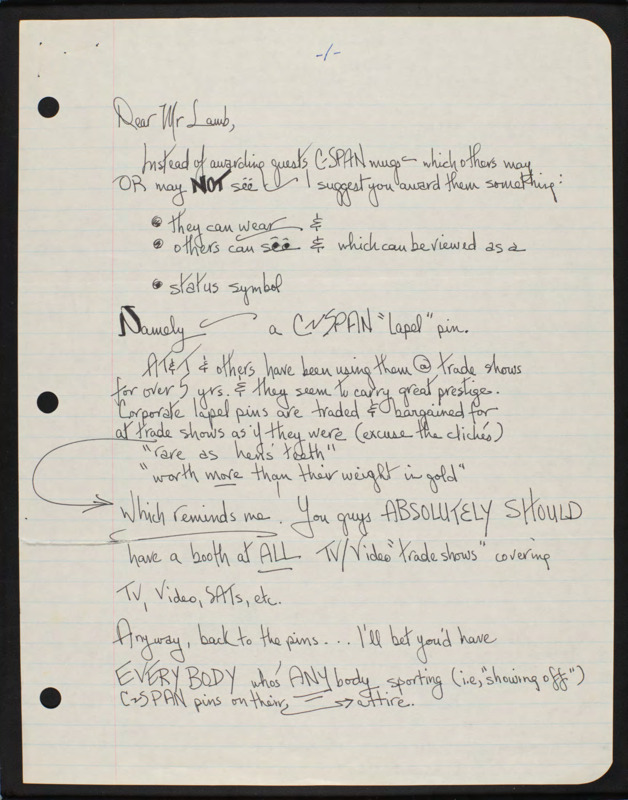 -1-
Dear Mr Lamb,
Instead of awarding guests C-SPAN mugs — which others may
OR may NOT see — I suggest you award them something:
• they can wear &
• others can see & which can be viewed as a
• status symbol
Namely — a C-SPAN "lapel" pin.
AT&T & others have been using them @ trade shows
for over 5 yrs. & they seem to carry great prestige.
Corporate lapel pins are traded & bargained for
at trade shows as if they were (excuse the clichés)
"rare as hen's teeth"
"worth more than their weight in gold"
Which reminds me. You guys ABSOLUTELY SHOULD
have a booth at ALL TV/Video "trade shows" covering
TV, Video, SATs, etc.
Anyway, back to the pins... I'll bet you'd have
EVERYBODY who's ANYbody sporting (i.e., "showing off")
C-SPAN pins on their → attire.